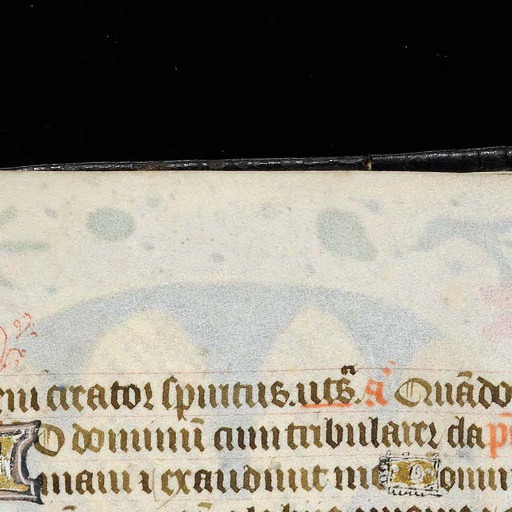 eni creator spiritus. uts̄. a̅ Quādo
D dominū cum tribularer cla p̄
maui ⁊ exaudiuit me D omin